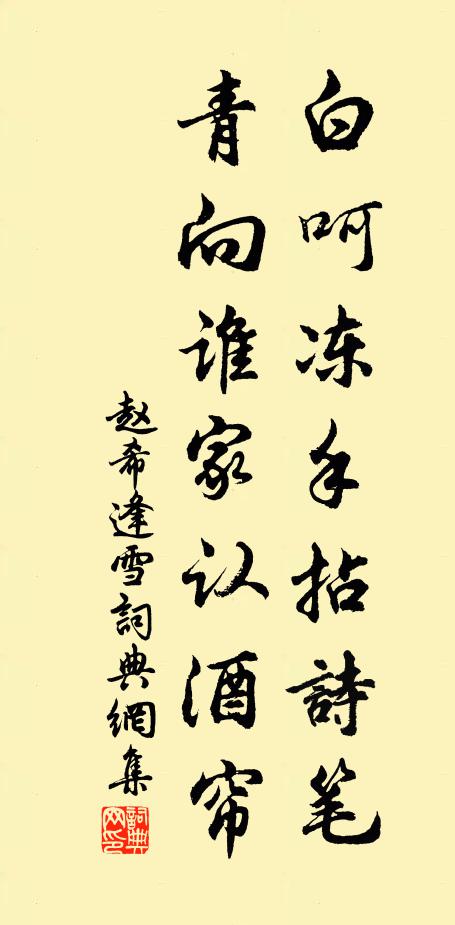 白呵冻手拈詩笔
青向谁家认酒帘
赵希逢雪詞典網集
詞典网印